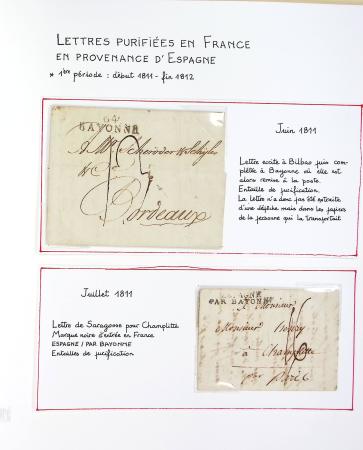 LETTRES PURIFIÉES EN FRANCE
EN PROVENANCE D'ESPAGNE
* 1ère période : début 1811 - fin 1812
Juin 1811
64
BAYONNE
Bordeaux
Lettre écrite à Bilbao puis com-
plétée à Bayonne où elle est
alors remise à la poste.
Entaille de purification.
La lettre n'a donc pas été extraite
d'une dépêche mais dans les papiers
de la personne qui la transportait
Juillet 1811
Lettre de Saragosse pour Champlitte
Marque noire d'entrée en France
ESPAGNE / PAR BAYONNE
Entailles de purification
ESPAGNE
PAR BAYONNE
A Monsieur
Monsieur
à Champlitte